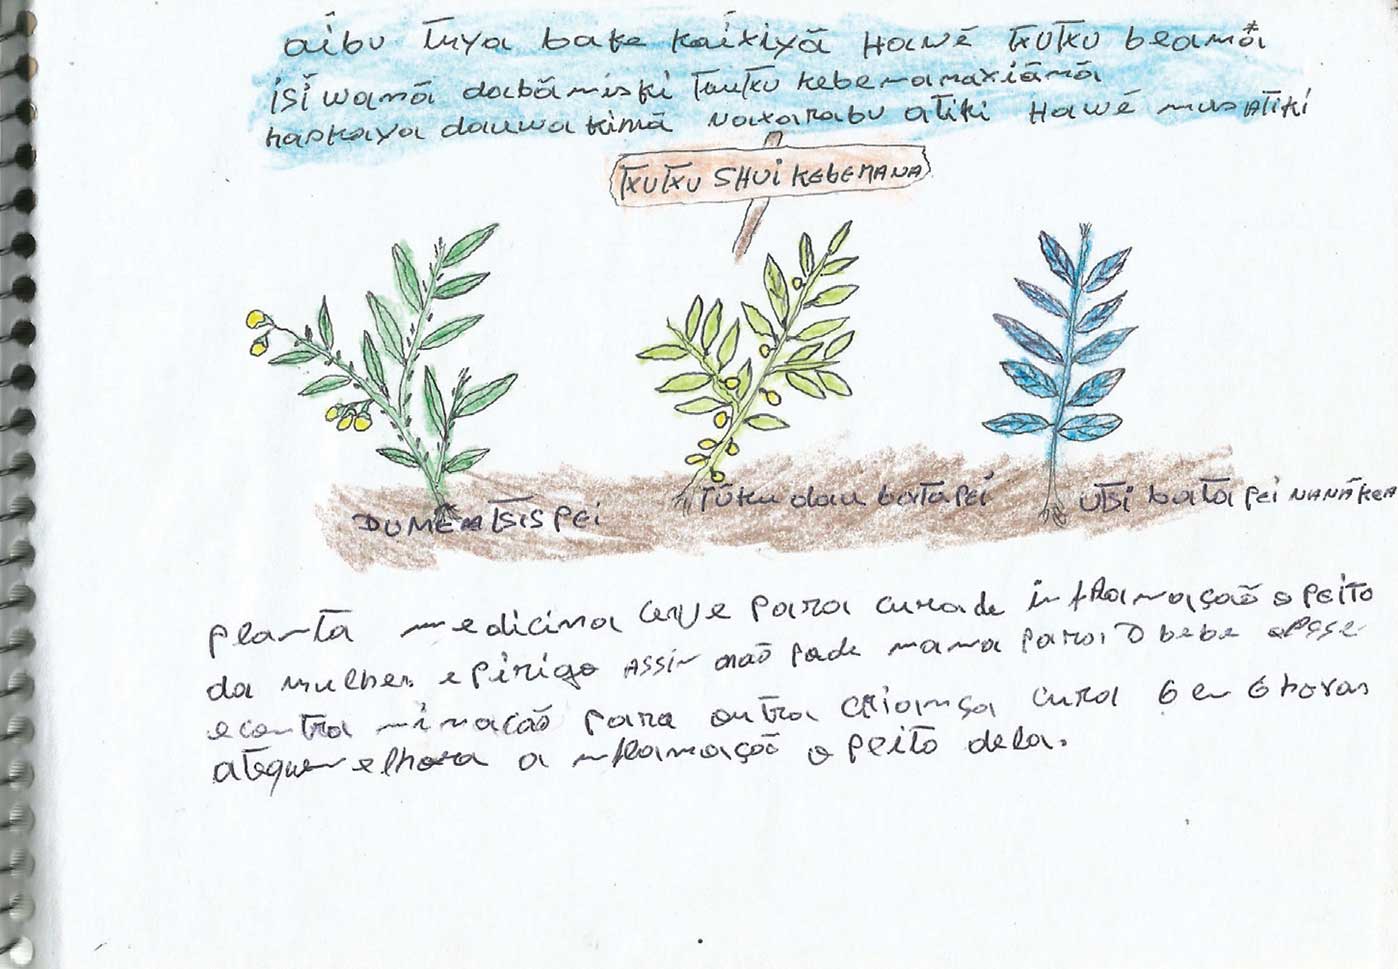 aibu tuya bake kaixiyã Hawē txutxu beamãi
isĩ wamã dabãmiski txutxu kebenanaxiãmã
haskaya dauwa kimã naxarabu atiki Hawē mus atiki
TXUTXU SHUI KEBENANA
DUMĒ TSIS PEI
Tũku dau bata pei
UTSI bata pei NANÃKEA
planta medicina cerve para cura de inflamação o peito
da mulher. e pirigo assim não pode mama para o bebe
econtra minação para outra criança cura 6 em 6 horas
atequemelhora a inflamação o peito dela.